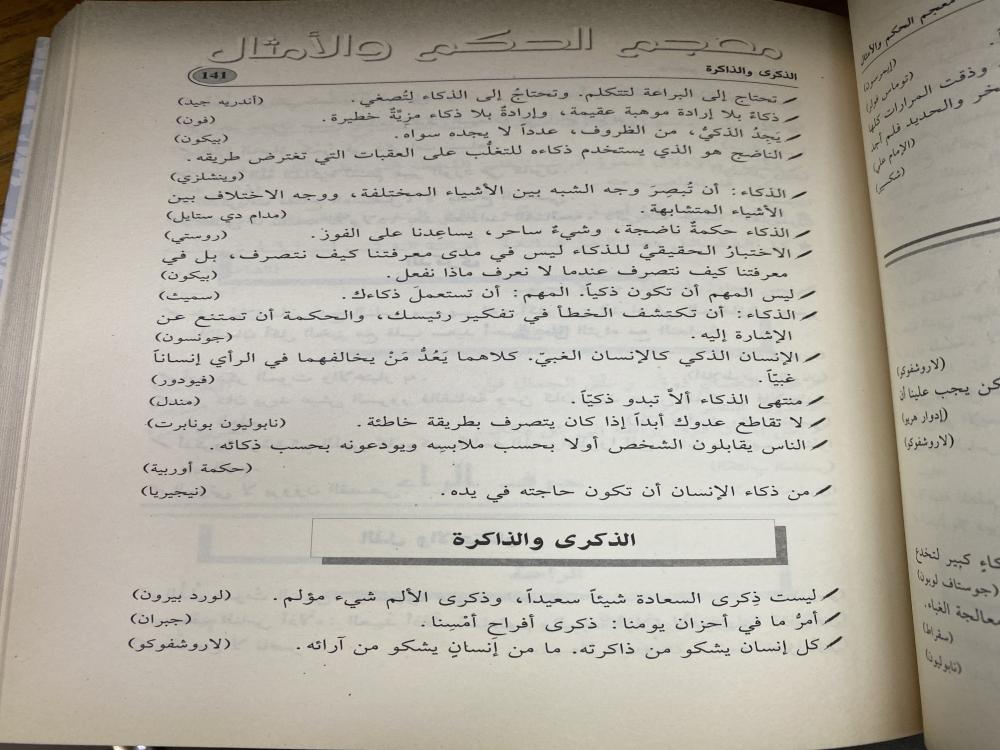 معجم الحكم والأمثال
الذكرى والذاكرة
141
تحتاج إلى البراعة لتتكلم. وتحتاجُ إلى الذكاء لِتُصغي. (أندريه جيد)
ذكاءٌ بلا إرادة موهبة عقيمة، وإرادةٌ بلا ذكاء مزيّةٌ خطيرة. (فون)
يَجِدُ الذكيُّ، من الظروف، عدداً لا يجده سواه. (بيكون)
الناضج هو الذي يستخدم ذكاءه للتغلُّب على العقبات التي تعترض طريقه.
(وينشلزي)
الذكاء: أن تُبصِرَ وجه الشبه بين الأشياء المختلفة، ووجه الاختلاف بين
الأشياء المتشابهة. (مدام دي ستايل)
الذكاء حكمةٌ ناضجة، وشيءٌ ساحر، يساعِدنا على الفوز. (روستي)
الاختبارُ الحقيقيُّ للذكاء ليس في مدى معرفتنا كيف نتصرف، بل في
معرفتنا كيف نتصرف عندما لا نعرف ماذا نفعل. (بيكون)
ليس المهم أن تكون ذكياً. المهم: أن تستعملَ ذكاءك. (سميث)
الذكاء: أن تكتشف الخطأ في تفكير رئيسك، والحكمة أن تمتنع عن
الإشارة إليه. (جونسون)
الإنسان الذكي كالإنسان الغبيّ. كلاهما يَعُدُّ مَنْ يخالفهما في الرأي إنساناً
غبيّاً. (فيودور)
منتهى الذكاء ألاّ تبدو ذكيّاً. (مندل)
لا تقاطع عدوك أبداً إذا كان يتصرف بطريقة خاطئة. (نابوليون بونابرت)
الناس يقابلون الشخص أولا بحسب ملابسِه ويودعونه بحسب ذكائه.
(حكمة أوربية)
من ذكاء الإنسان أن تكون حاجته في يده. (نيجيريا)
الذكرى والذاكرة
ليست ذِكرى السعادة شيئاً سعيداً، وذكرى الألم شيء مؤلم. (لورد بيرون)
أمرُّ ما في أحزان يومنا: ذكرى أفراحِ أمْسِنا. (جبران)
كل إنسان يشكو من ذاكرته. ما من إنسانٍ يشكو من آرائه. (لاروشفوكو)
معجم الحكم والأمثال
(إيمرسون)
(توماس فولر)
وذقت المرارات كلها
خر والحديد فلم أجد
(الإمام علي)
(شكسبير)
(لاروشفوكو)
كن يجب علينا أن
(إدوار هريو)
(لاروشفوكو)
كاءٍ كبير لتخدع
(جوستاف لوبون)
معالجة الغباء.
(سقراط)
(نابوليون)